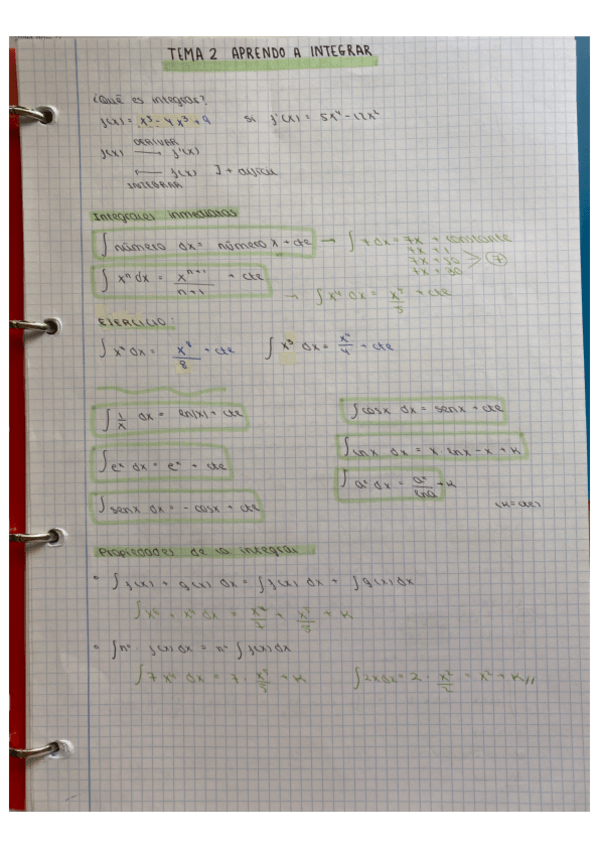 TEMA 2 APRENDO A INTEGRAR
¿Qué es integrar?
f(x) = x⁵ - 4x³ + 9 si f'(x) = 5x⁴ - 12x²
DERIVAR
f(x) ⟶ f'(x)
⟵ f(x)
INTEGRAR
Integrales inmediatas
∫ número dx = número x + cte → ∫ 7 dx = 7x + constante
7x + 1
7x + 10 > 7
7x + 30
∫ xⁿ dx = xⁿ⁺¹/n+1 + cte
→ ∫ x⁴ dx = x⁵/5 + cte
EJERCICIO:
∫ x⁷ dx = x⁸/8 + cte ∫ x³ dx = x⁴/4 + cte
∫ 1/x dx = ln|x| + cte ∫ cosx dx = senx + cte
∫ eˣ dx = eˣ + cte ∫ lnx dx = x · lnx - x + K
∫ senx dx = - cosx + cte ∫ aˣ dx = aˣ/lna + K
(K = cte)
Propiedades de la integral
∫ f(x) + g(x) dx = ∫ f(x) dx + ∫ g(x) dx
∫ nº · f(x) dx = nº ∫ f(x) dx
∫ 7x⁴ dx = 7 · x⁵/5 + K ∫ 2x dx = 2 · x²/2 = x² + K //